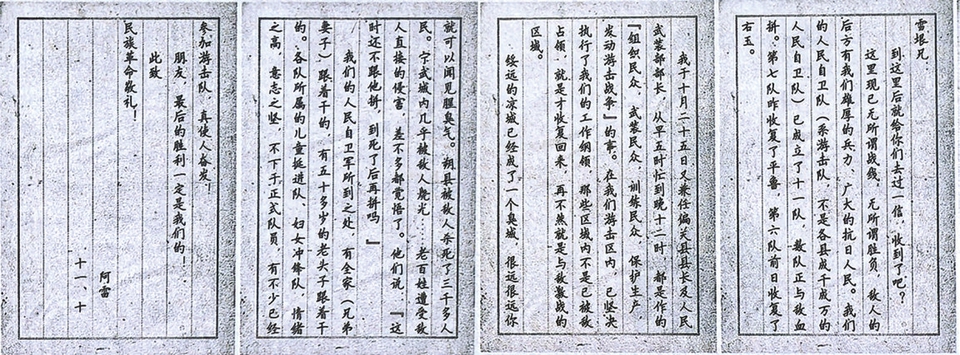 雪垠兄：
到这里后就给你们去过一信，收到了吧？
这里现已无所谓战线，无所谓胜负，敌人的
后方有我们雄厚的兵力、广大的抗日人民。我们
的人民自卫队（系游击队，不是各县成千成万的
人民自卫队）已成立了十一队，数队正与敌血
拼。第七队昨收复了平鲁，第六队前日收复了
右玉。
我于十月二十五日又兼任偏关县县长及人民
武装部部长，从早五时忙到晚十二时，都是作的
『组织民众，武装民众，训练民众，保护生产
发动游击战争』的事。在我们游击区内，已坚决
执行了我们的工作纲领，那些区域内不是已被敌
占领，就是才收复回来，再不然就是与敌激战的
区域。
绥远的凉城已经成了一个臭城，很远很远你
就可以闻见腥臭气。朔县被敌人杀死了三千多人
民。宁武城内几乎被敌人烧光……老百姓遭受敌
人直接的侵害，差不多都觉悟了。他们说：『这
时还不跟他拼，到死了后再拼吗』
我们的人民自卫军所到之处，有全家（兄弟
妻子）跟着干的，有五十多岁的老头子跟着干
的。各队所属的儿童挺进队、妇女冲锋队，情绪
之高，意志之坚，不下于正式队员，有不少已经
参加游击队，真使人奋发！
朋友，最后的胜利一定是我们的！
此致
民族革命敬礼！
阿雷
十一、十